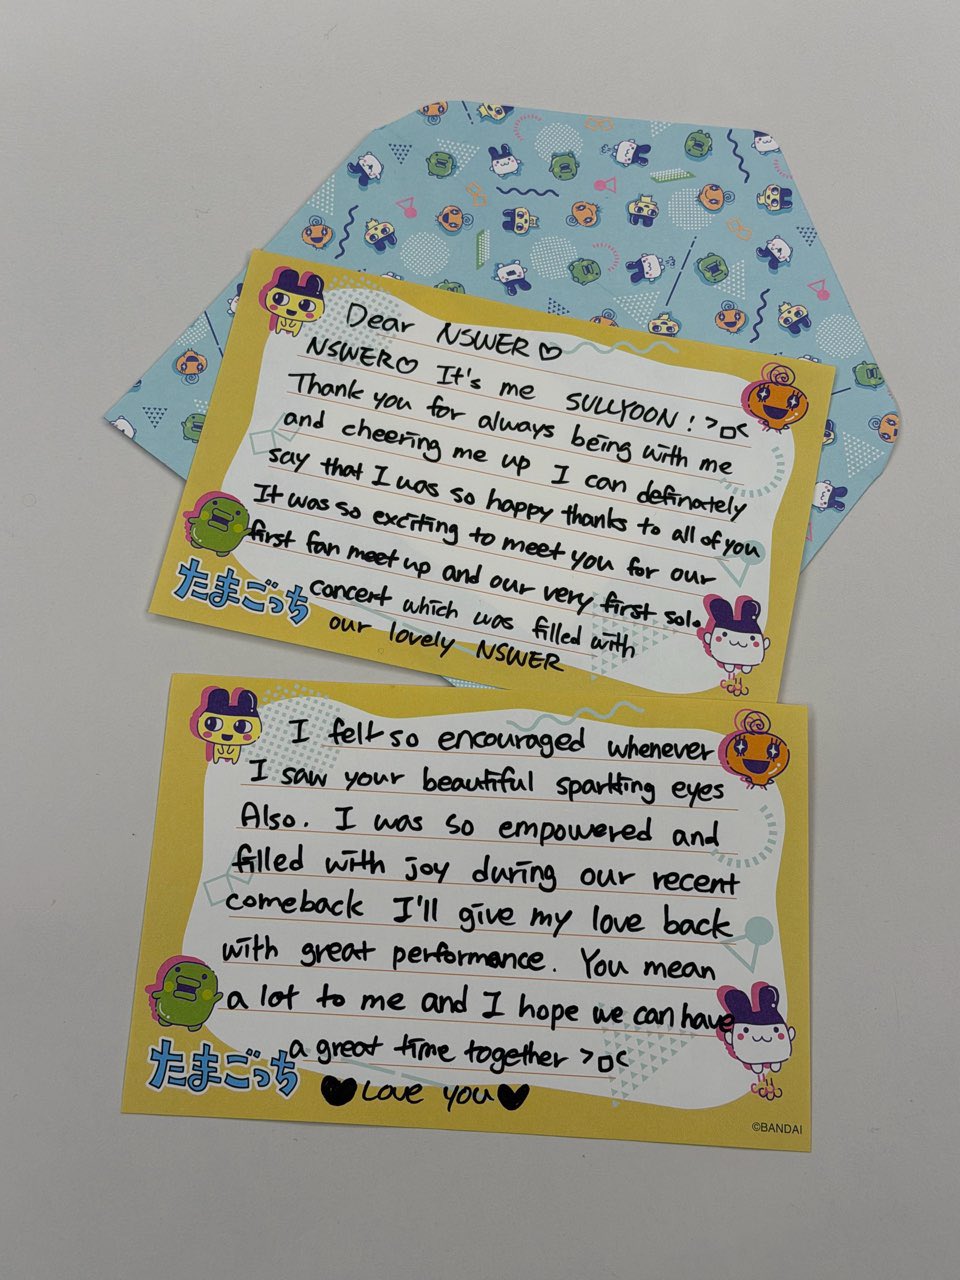 Dear NSWER ♡
NSWER♡ It's me SULLYOON! >ㅁ<
Thank you for always being with me
and cheering me up I can definately
say that I was so happy thanks to all of you
It was so exciting to meet you for our
first fan meet up and our very first solo
concert which was filled with
our lovely NSWER
たまごっち
I felt so encouraged whenever
I saw your beautiful sparkting eyes
Also. I was so empowered and
filled with joy during our recent
comeback I'll give my love back
with great performance. You mean
a lot to me and I hope we can have
a great time together >ㅁ<
♥Love you♥
たまごっち
©BANDAI